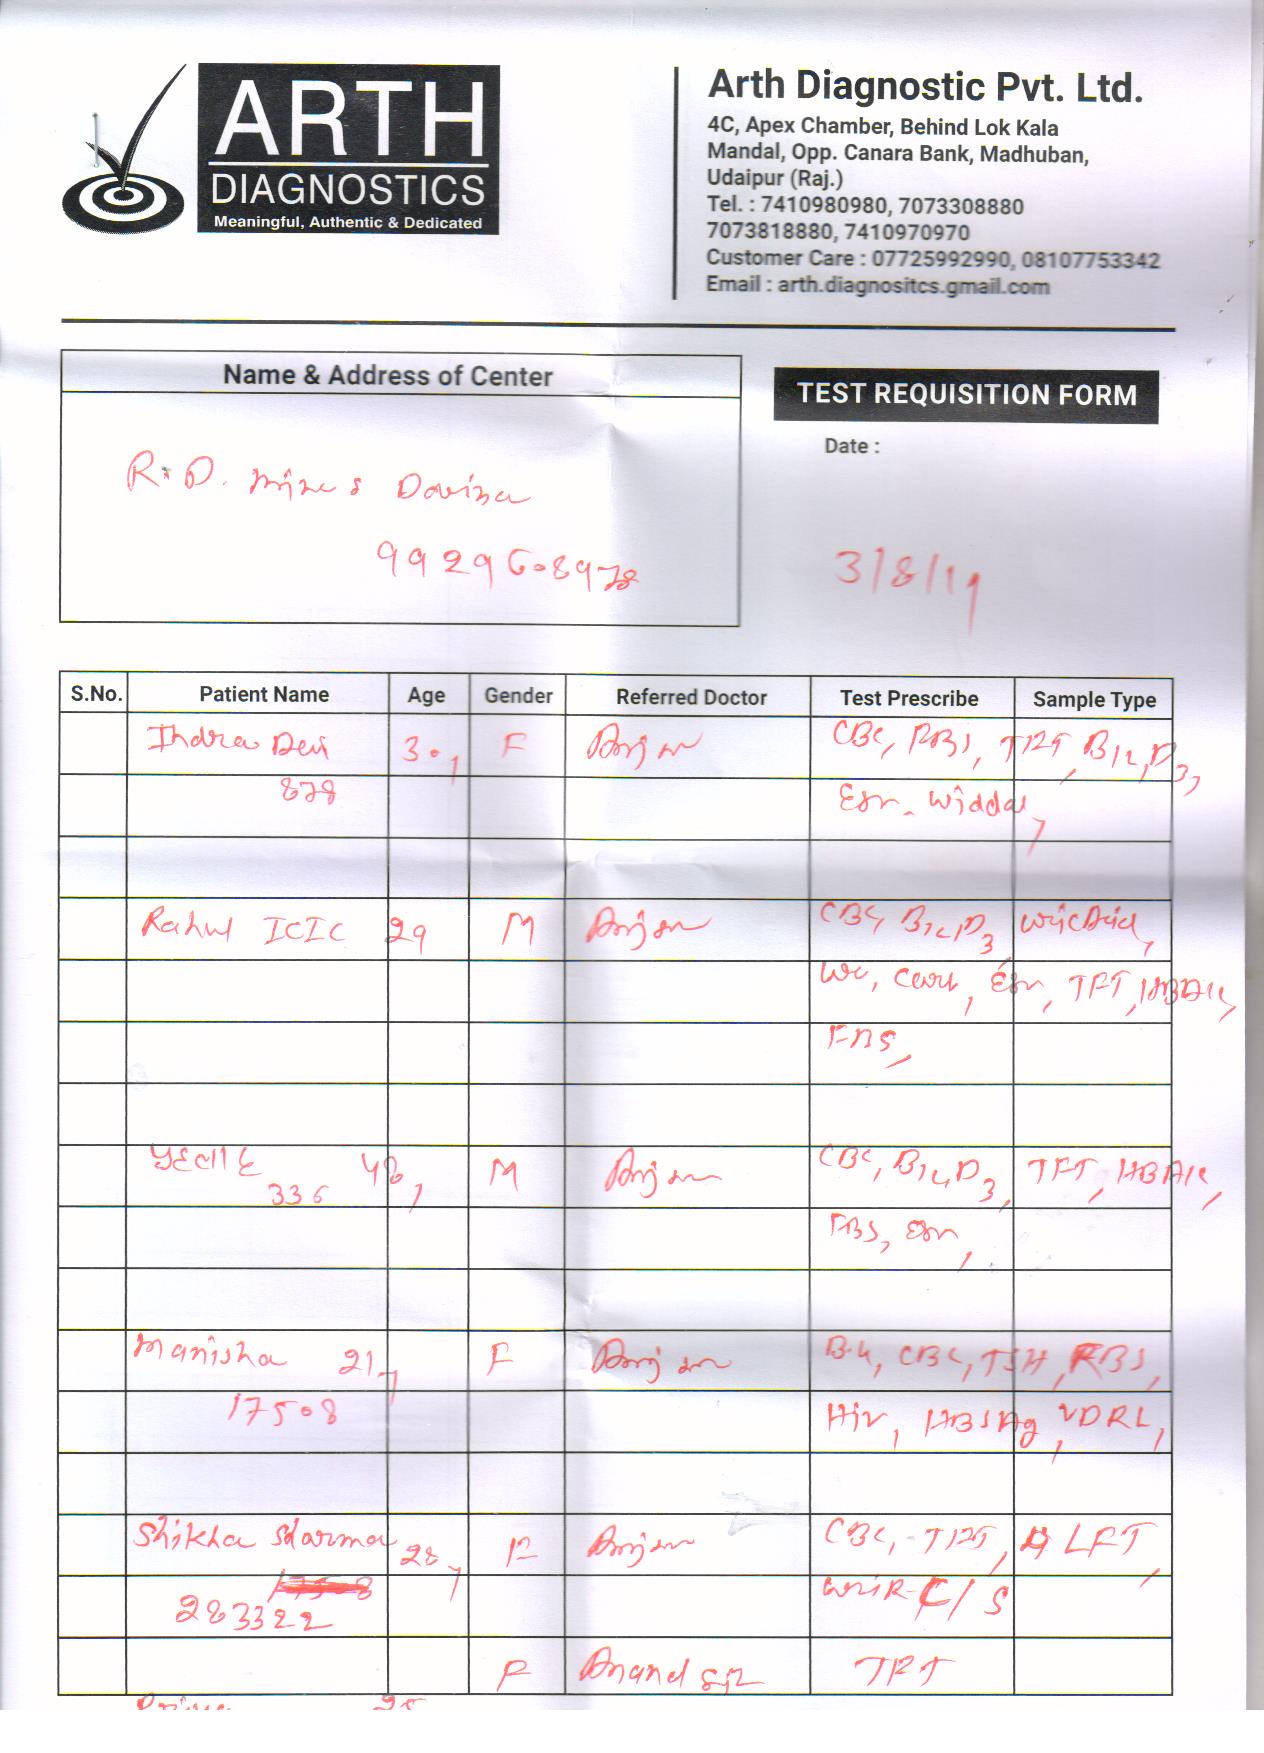 ARTH
DIAGNOSTICS
Meaningful, Authentic & Dedicated
Arth Diagnostic Pvt. Ltd.
4C, Apex Chamber, Behind Lok Kala
Mandal, Opp. Canara Bank, Madhuban,
Udaipur (Raj.)
Tel. : 7410980980, 7073308880
7073818880, 7410970970
Customer Care : 07725992990, 08107753342
Email : arth.diagnositcs.gmail.com
Name & Address of Center
TEST REQUISITION FORM
Date :
R.D.
9929608978
3/8/19
S.No. Patient Name Age Gender Referred Doctor Test Prescribe Sample Type
Indra Devi 30, F CBC, RBS, TFT, B12, D3,
878 Esr. Widdal,
Rahul ICIC 29 M CBC, B12, D3, Uric Acid,
Esr, TFT, HBA1c,
48, M CBC, B12, D3, TFT, HBA1c,
336
FBS, Esr,
Manisha 21, F CBC, TSH, RBS,
17508 Hiv, HBSAg, VDRL,
Shikha Sharma 28, F CBC, TFT, LFT,
283322 C/S
F Anand TFT
25